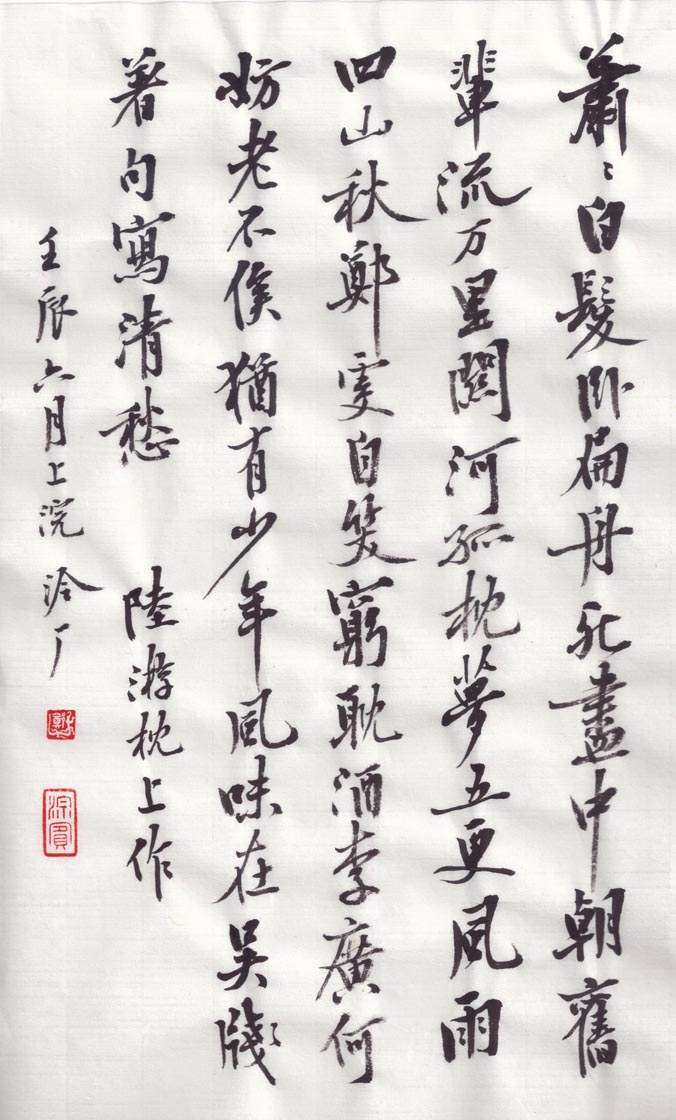 蕭〻白髮卧扁舟死盡中朝舊
輩流万里關河孤枕夢五更風雨
四山秋鄭虔自笑窮耽酒李廣何
妨老不侯猶有少年風味在吳牋
著句寫清愁 陸游枕上作
壬辰六月上浣 泠厂